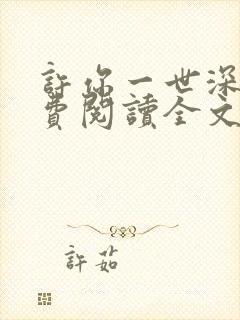 許你一世深
費閱讀全文
許茹